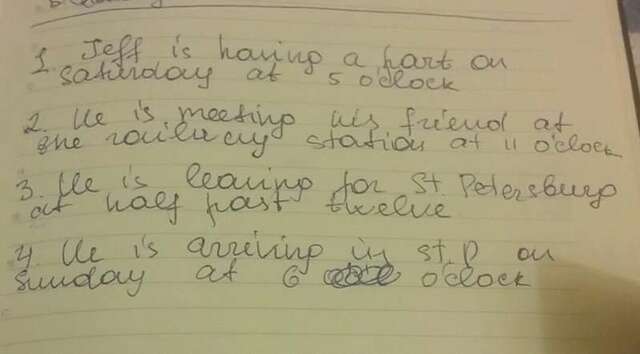 1. Jeff is having a part on
saturday at 5 o'clock
2. He is meeting his friend at
the railway station at 11 o'clock
3. He is leaving for St. Petersburg
at half past twelve
4 He is arriving in st. P on
sunday at 6 o'clock